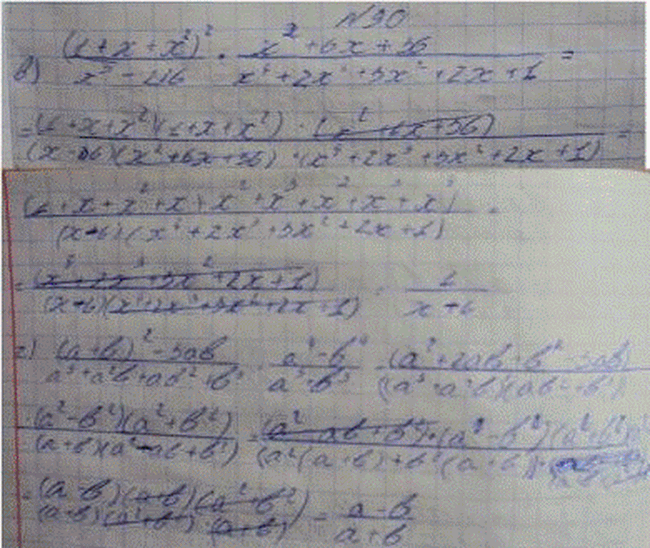 №90
в) (1+x+x²)² / (x³-216) · (x²+6x+36) / (x⁴+2x³+3x²+2x+1) =
= (1+x+x²)(1+x+x²) · (x²+6x+36) / (x-6)(x²+6x+36) · (x⁴+2x³+3x²+2x+1) =
(1+x+x²+x+x²+x³+x²+x³+x⁴) / (x-6)(x⁴+2x³+3x²+2x+1) =
= (x⁴+2x³+3x²+2x+1) / (x-6)(x⁴+2x³+3x²+2x+1) = 1 / (x-6)
г) ((a+b)²-3ab) / (a³+a²b+ab²+b³) · (a⁴-b⁴) / (a³+b³) = (a²+2ab+b²-3ab) / (a³+a²b)(ab²+b³)
(a²-b²)(a²+b²) / (a+b)(a²-ab+b²) = (a²-ab+b²)·(a²-b²)(a²+b²) / (a²(a+b)+b²(a+b))
= (a-b)(a+b)(a²+b²) / (a+b)(a²+b²)·(a+b) = (a-b) / (a+b)